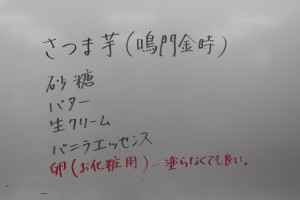 さつま芋(鳴門金時)
砂糖
バター
生クリーム
バニラエッセンス
卵(お化粧用)-塗らなくても良い。